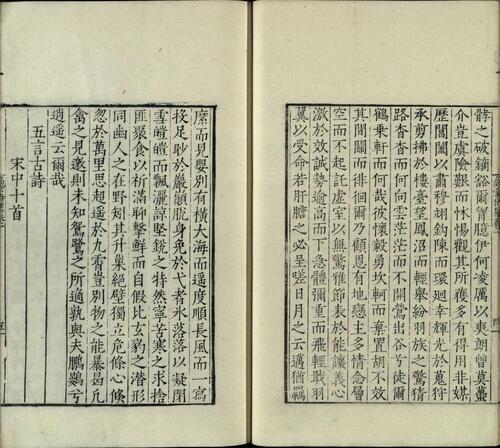 髇之破鏑豁爾胷臆伊何凌厲以爽朗曾莫蠆
介豈虞險艱而怵惕觀其所獲多有得用非媒
歷閶闔以肅穆翊鈎陳而環迴幸輝光於蒐狩
承剪拂於樓臺望鳳沼而輕舉紛羽族之驚猜
路杳杳而何向雲茫茫而不開鶯出谷兮徒爾
鶴乗軒而何哉彼懷毅勇坎軻而棄置胡不效
其間關而徘徊爾乃顧恩有地戀主多情念層
空而不起託虛室以無驚雅節表於能讓義心
激於效誠勢逾高而下急體彌重而飛輕戢羽
翼以受命若肝膽之必呈嗟日月之云邁猶羈
縻而見嬰别有横大海而遥度順長風而一寫
投足眇於巖巔脱身免於弋者氷落落以凝閉
雪皚皚而飄灑諒堅鋭之特然寧苦寒之求捨
匪聚食以祈滿聊擊鮮而自假比玄豹之潛形
同幽人之在野矧其升巢絶壁獨立危條心倏
忽於萬里思超遥於九霄豈别物之能暴曷凡
禽之見邀則未知鴛鷺之所適孰與夫鵬鷃兮
逍遥云爾哉
五言古詩
宋中十首